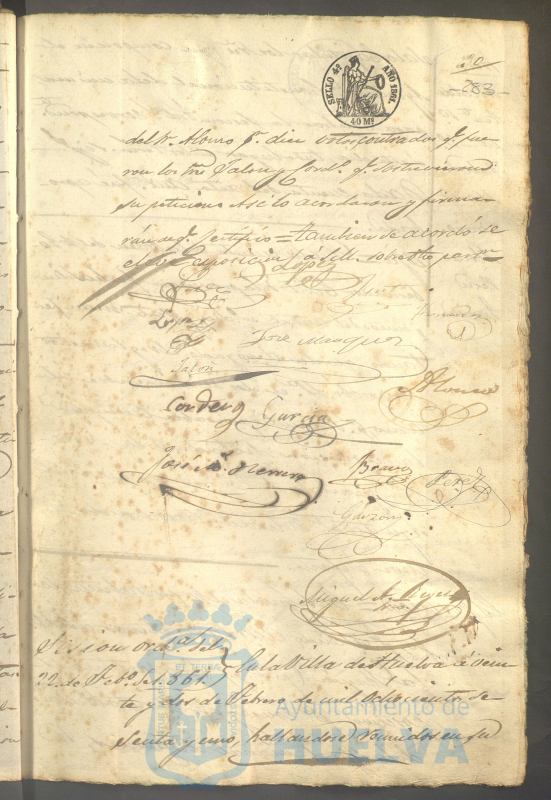 SELLO 4º AÑO 1861.
40 Ms
20
-283-
del Sr. Alonso pr. diez votos contra dos q. fue
ron los Sres Jalon y Cord.o q.
su peticion Asi lo acordaron y firma
rán de q. Certifico = tambien se acordó se
eleve exposicion á S.M. sobre
Lopez
Jose Marquez
Jalon
Alonso
Cordero Garcia
José Mª Herrera
Bravo
Perez
Garzon
Miguel
Sesion ord.a del
22 de Feb.o de 1861.
En la Villa de Huelva á vein
te y dos de Febrero de mil ochociento se
senta y uno, hallandose reunidos en su
Ayuntamiento de
HUELVA